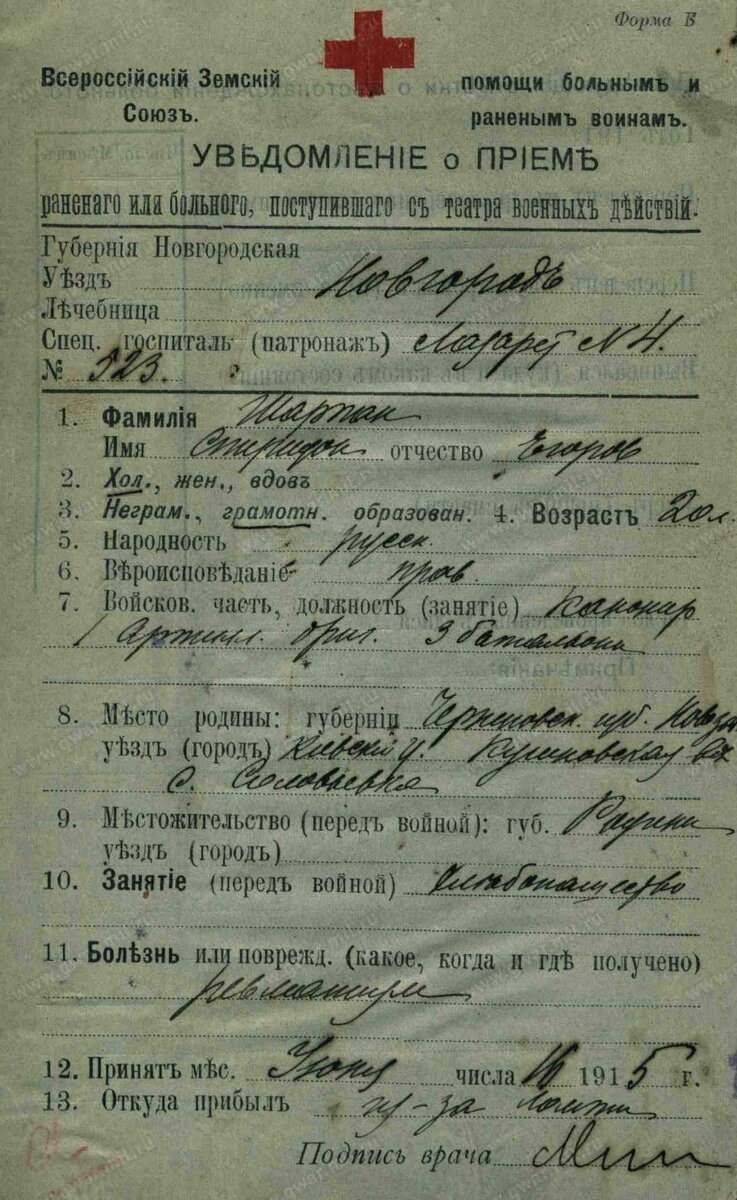 Форма Б
Всероссійскій Земскій помощи больнымъ и
Союзъ. раненымъ воинамъ.
УВѢДОМЛЕНІЕ о ПРІЕМѢ
раненаго или больного, поступившаго съ театра военныхъ дѣйствій.
Губернія Новгородская
Уѣздъ Новгородъ
Лѣчебница
Спец. госпиталь (патронажъ) Лазарет N 4.
№ 523.
1. Фамилія Шарпан
Имя Спиридон отчество Егоров
2. Хол., жен., вдовъ
3. Неграм., грамотн. образован. 4. Возрастъ 20 л.
5. Народность русск.
6. Вѣроисповѣданіе прав.
7. Войсков. часть, должность (занятіе) Канонир
1 Артилл. бриг. 3 батальона
8. Мѣсто родины: губерніи Черниговск.
уѣздъ (городъ)
с. Соловьевка
9. Мѣстожительство (передъ войной): губ. Родина
уѣздъ (городъ)
10. Занятіе (передъ войной) хлебопашество
11. Болѣзнь или поврежд. (какое, когда и гдѣ получено)
ревматизм
12. Принятъ мѣс. Июня числа 16 1915 г.
13. Откуда прибылъ из-за Ломжи
Подпись врача